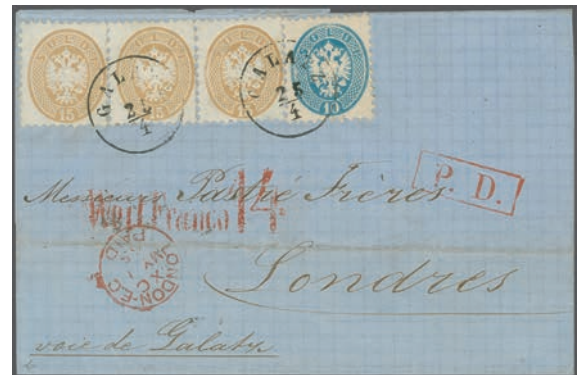 SOLDI SOLDI SOLDI SOLDI
15 15 15 10
GALATZ 25/4 GALATZ 25/4
P. D.
Messieurs Pastré Frères
Wert. Franco 14
LONDON-E.C
PAID
Londres
voie de Galatz